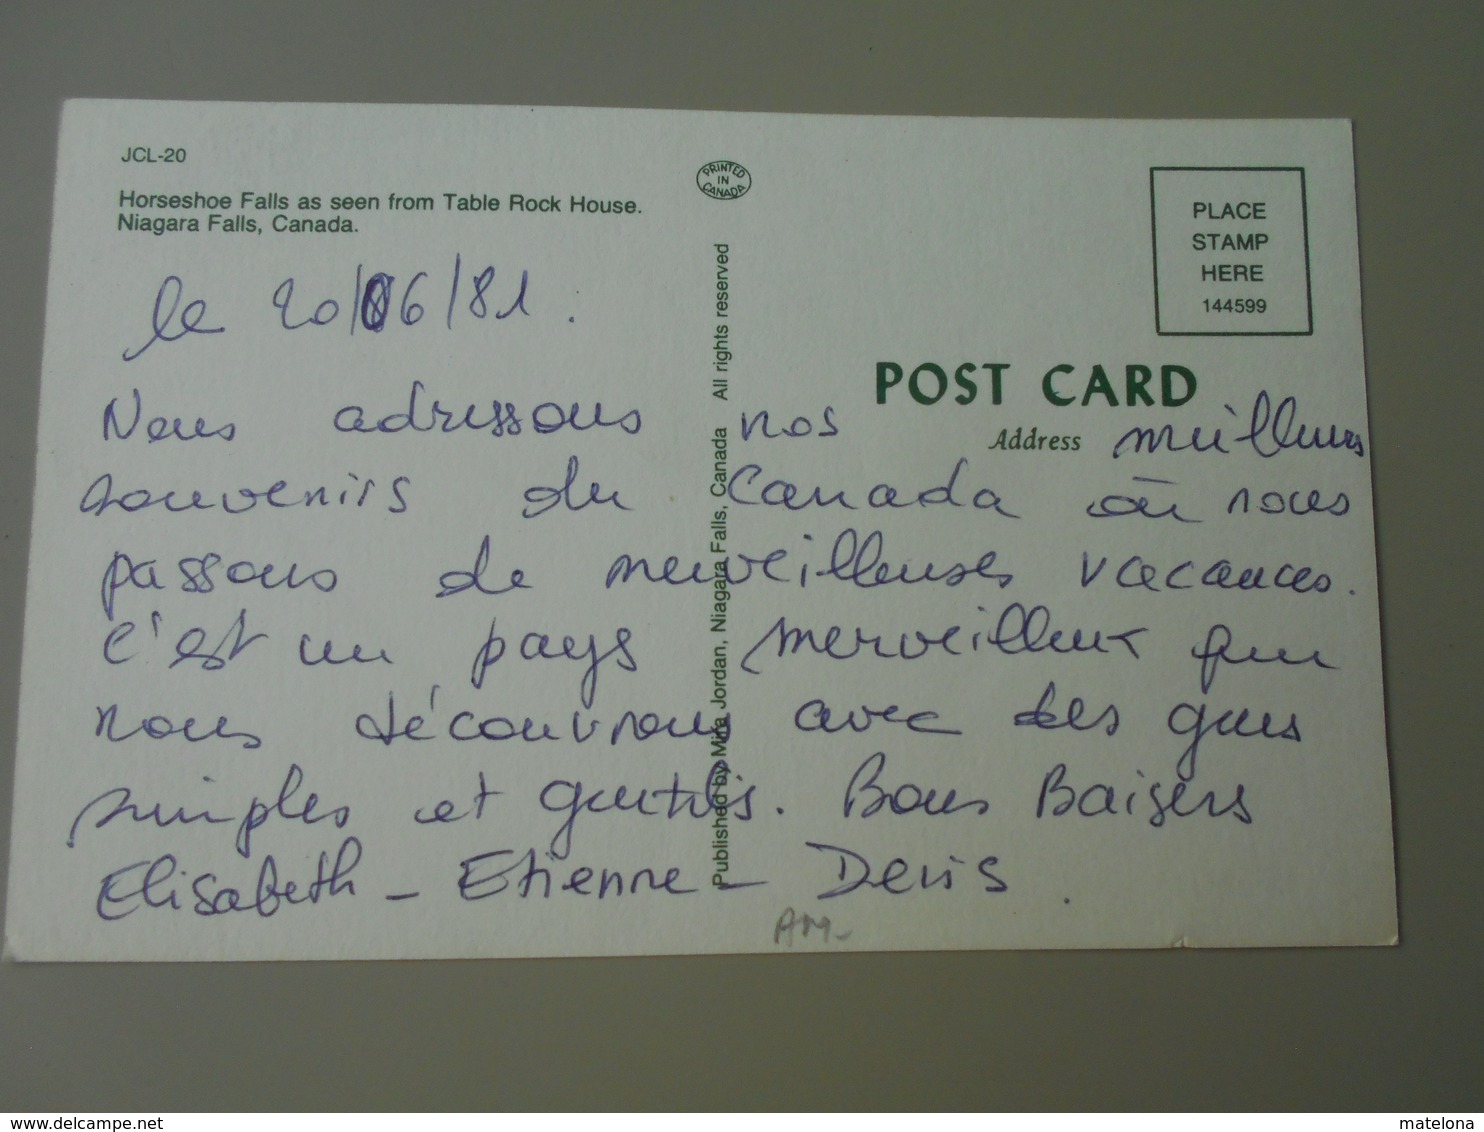 JCL-20
Horseshoe Falls as seen from Table Rock House.
Niagara Falls, Canada.
PRINTED IN CANADA
PLACE
STAMP
HERE
144599
POST CARD
Address
Published by Mira Jordan, Niagara Falls, Canada All rights reserved
le 20/06/81.
Nous adressons nos meilleurs
souvenirs du Canada où nous
passons de merveilleuses vacances.
C'est un pays merveilleux que
nous découvrons avec des gens
simples et gentils. Bons Baisers
Elisabeth - Etienne - Denis.
AM-
matelona